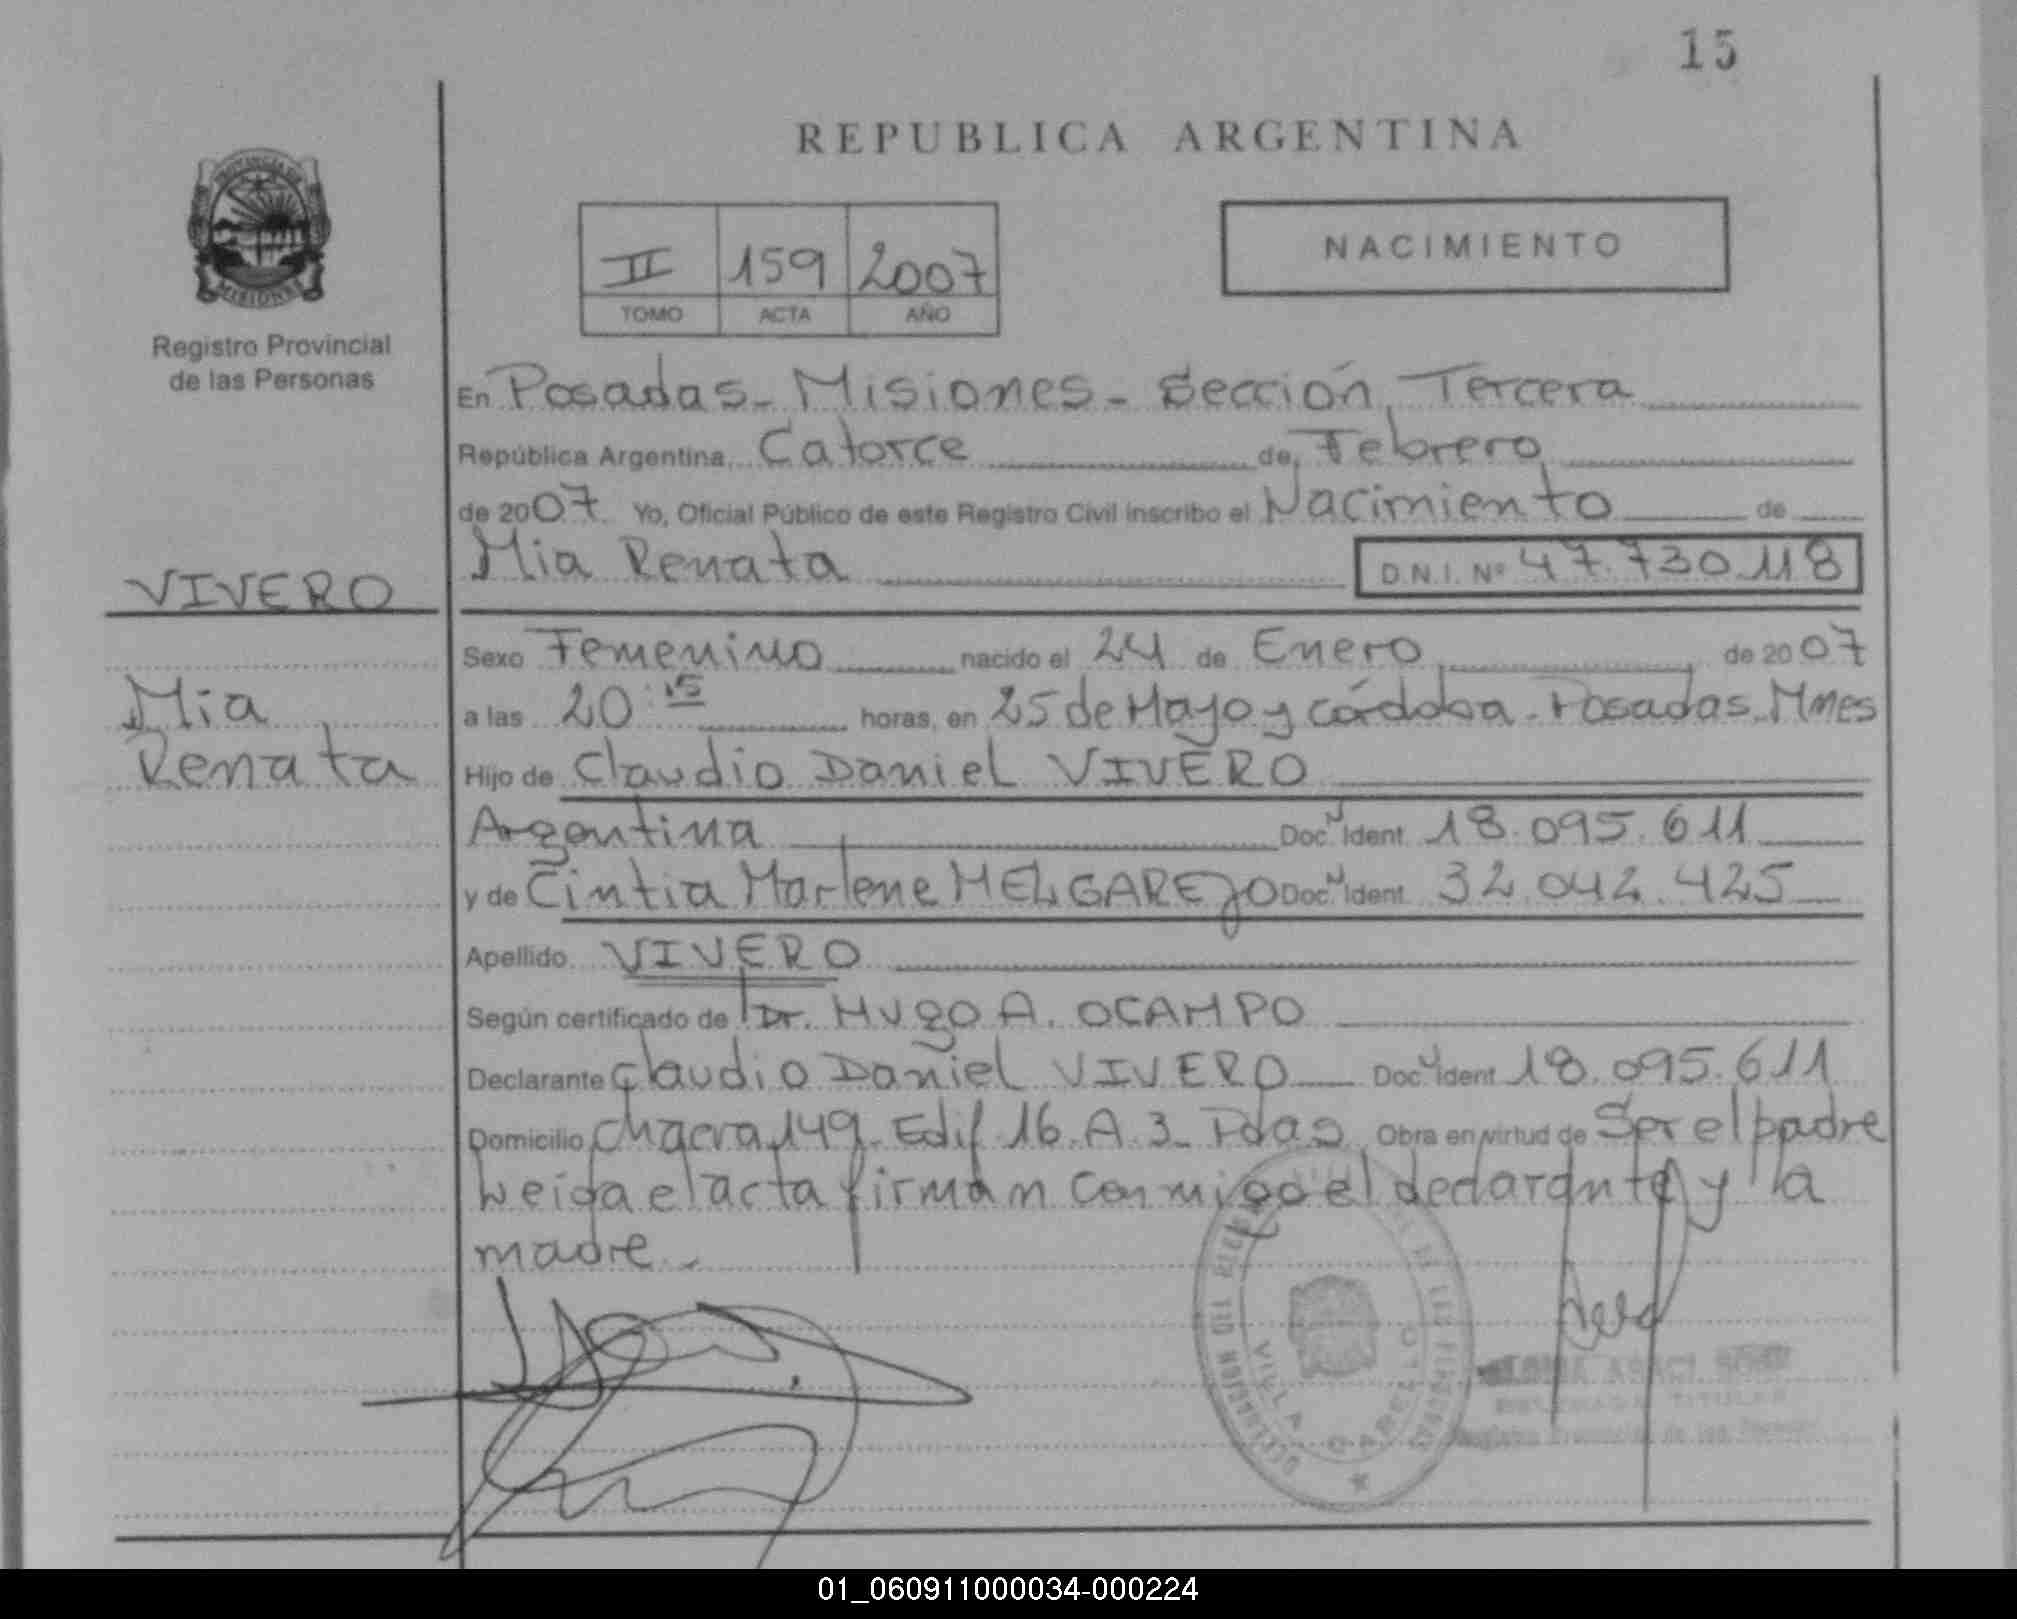 15
REPUBLICA ARGENTINA
PROVINCIA DE
MISIONES
Registro Provincial
de las Personas
II 159 2007
TOMO ACTA AÑO
NACIMIENTO
En Posadas - Misiones - Sección Tercera
República Argentina, Catorce de Febrero
de 2007 Yo, Oficial Público de este Registro Civil inscribo el Nacimiento de
VIVERO
Mia Renata D.N.I. Nº 47.730.118
Sexo Femenino nacido el 24 de Enero de 2007
Mia
Renata
a las 20:15 horas, en 25 de Mayo y córdoba - Posadas - Mnes
Hijo de Claudio Daniel VIVERO
Argentina Doc. Ident. 18.095.611
y de Cintia Marlene MELGAREJO Doc. Ident. 32.042.425
Apellido VIVERO
Según certificado de Dr. Hugo A. OCAMPO
Declarante Claudio Daniel VIVERO Doc. Ident 18.095.611
Domicilio Chacra 149 - Edif 16 - A 3 - Pdas Obra en virtud de Ser el padre
Leida el acta firman conmigo el declarante y la
madre -
VILLA CABELLO
TITULAR
01_060911000034-000224